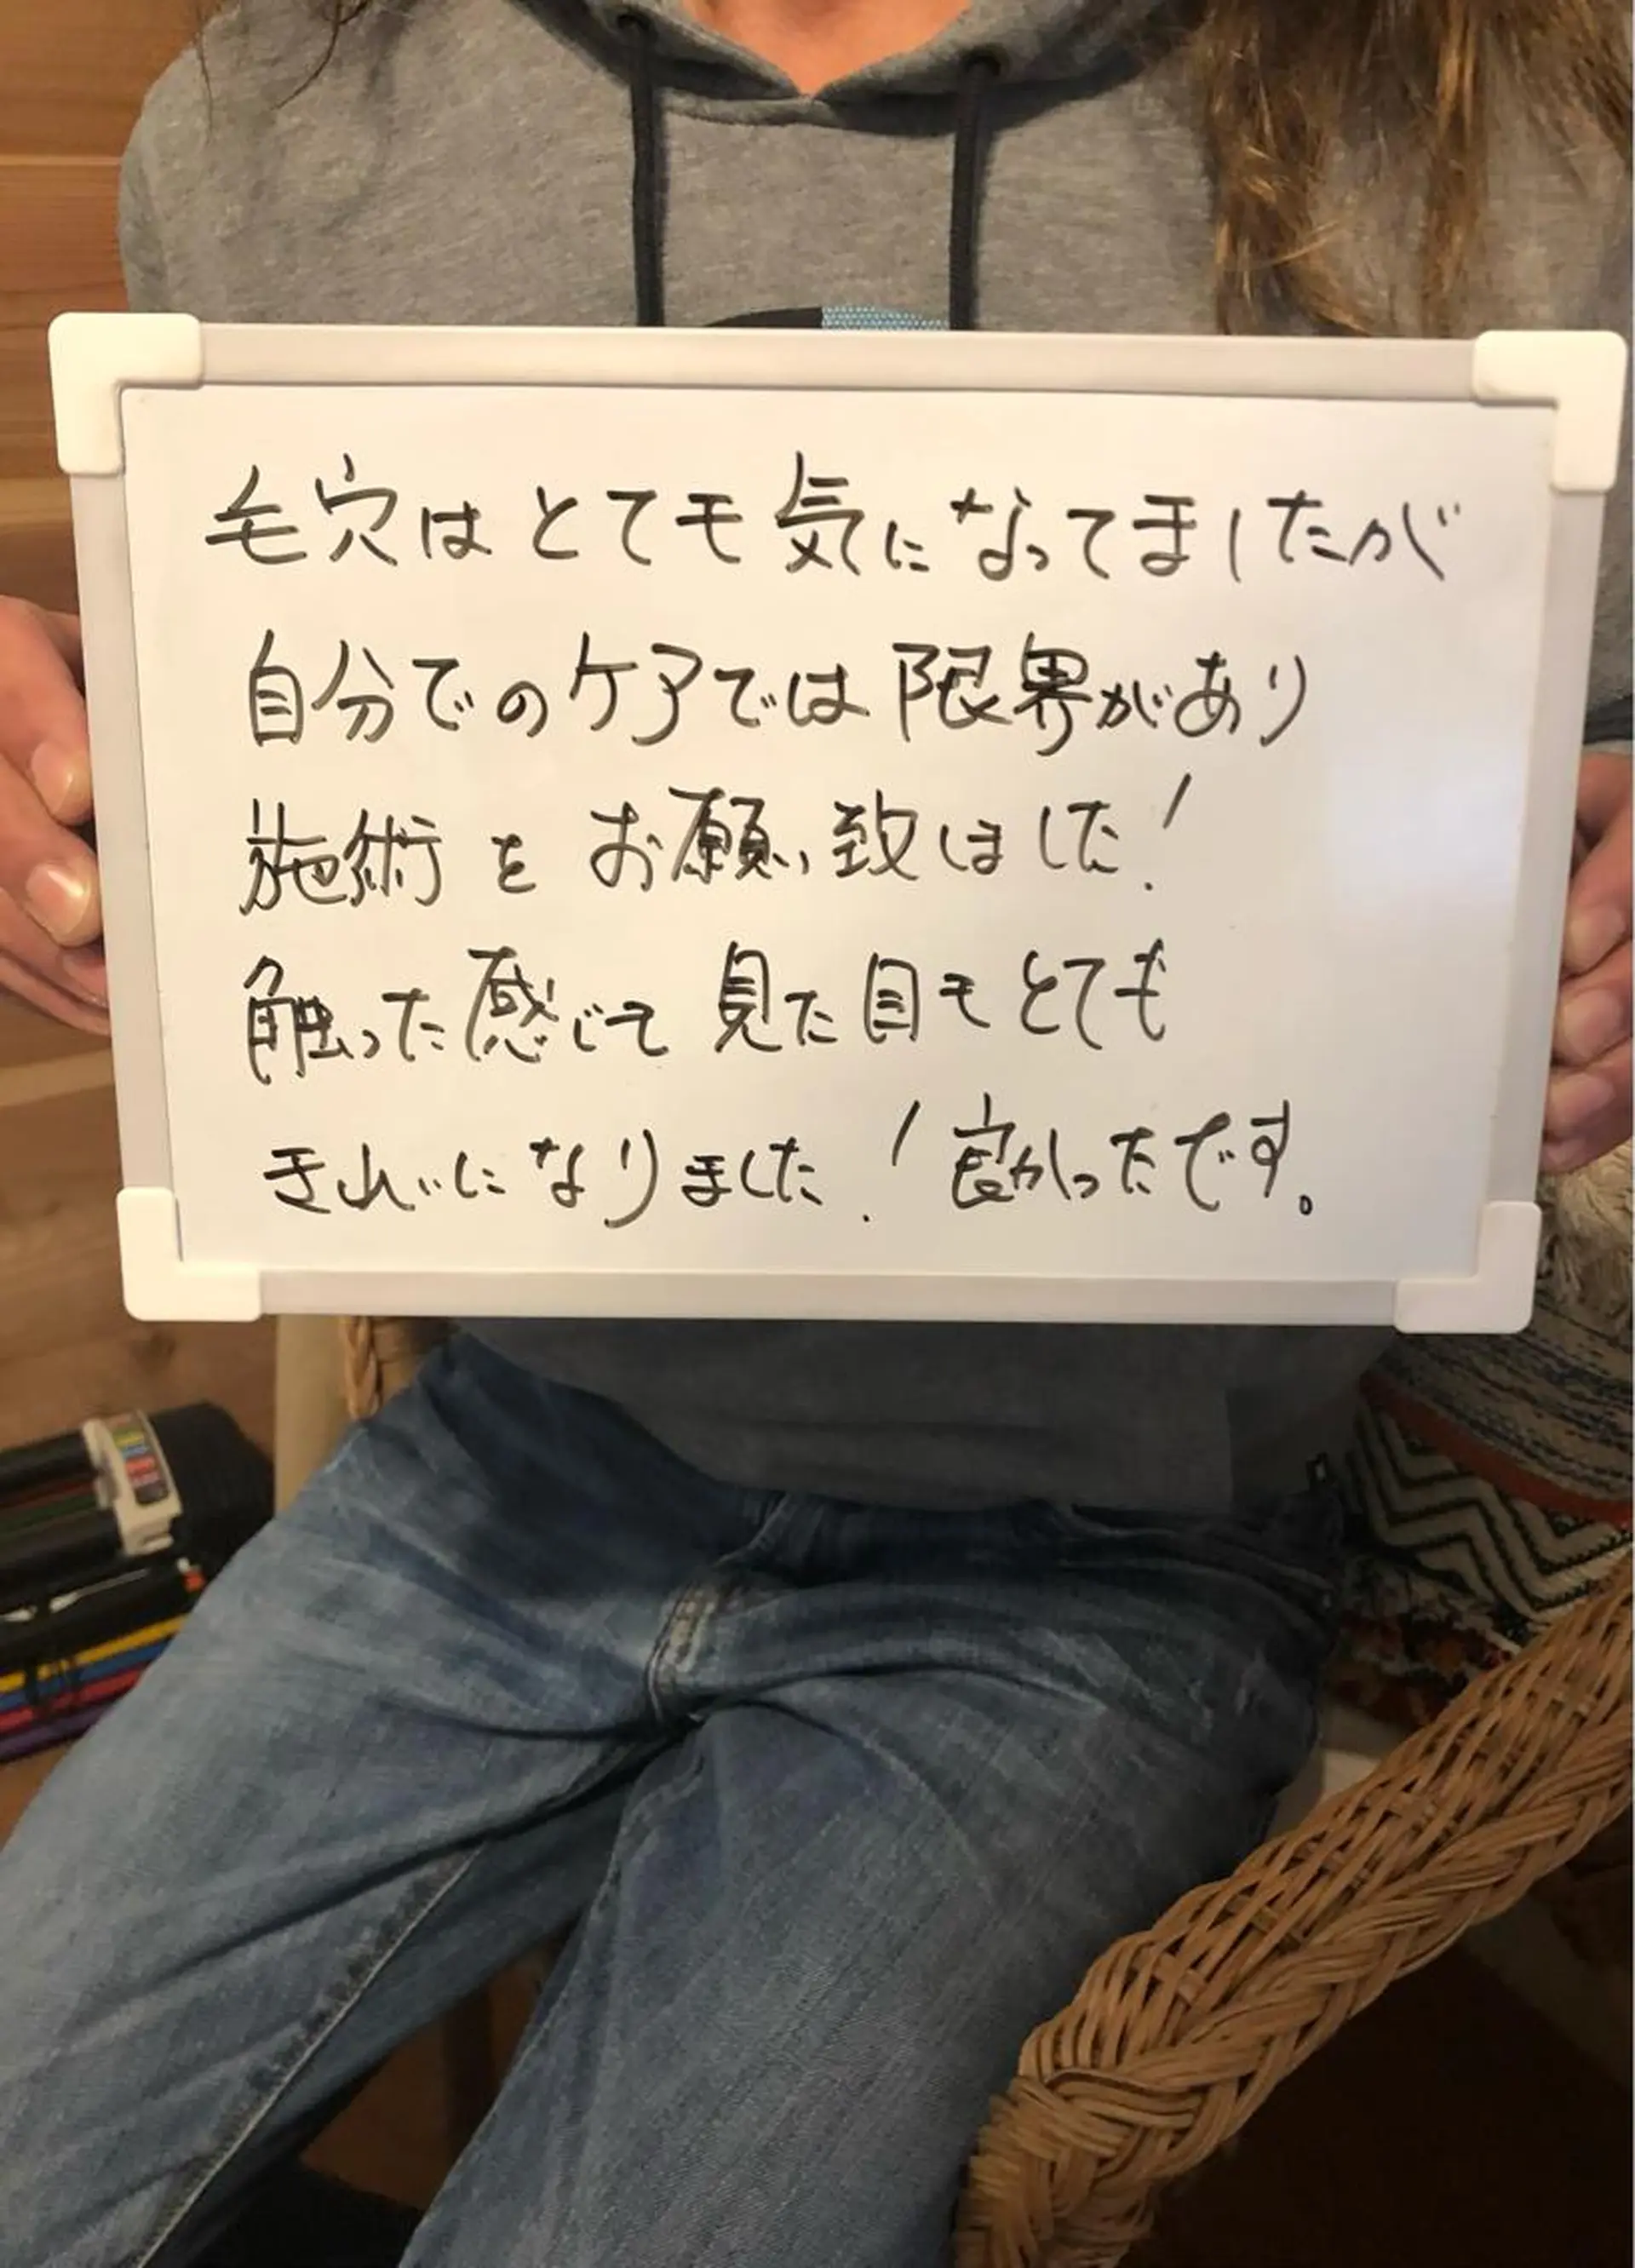 毛穴はとてモ気になってましたが
自分でのケアでは限界があり
施術をお願い致しました！
触った感じモ見た目モとても
きれいになりました！良かったです。